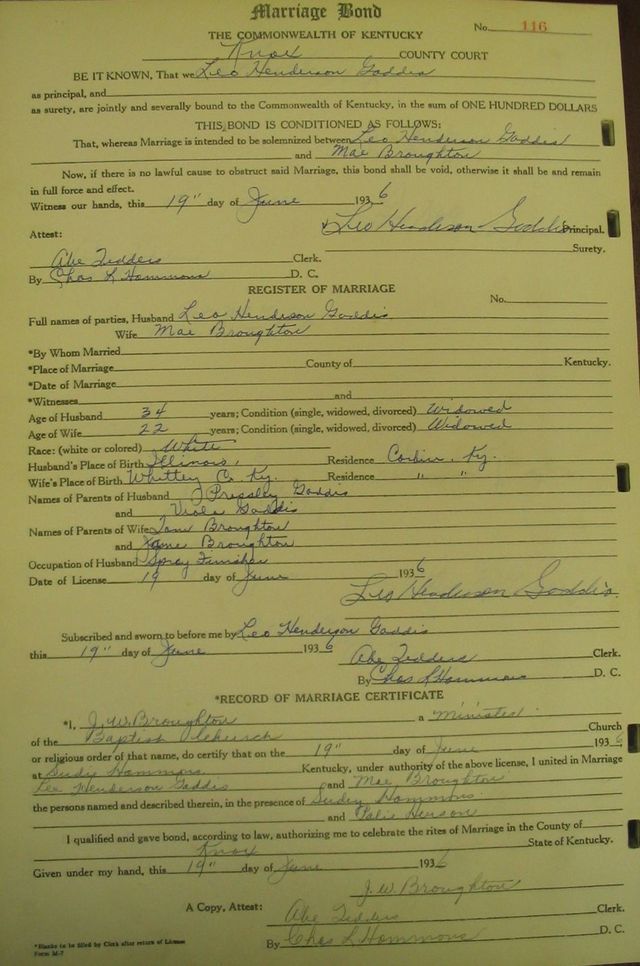 Marriage Bond
No. 116
THE COMMONWEALTH OF KENTUCKY
Knox COUNTY COURT
BE IT KNOWN, That we Leo Henderson Gaddis
as principal, and
as surety, are jointly and severally bound to the Commonwealth of Kentucky, in the sum of ONE HUNDRED DOLLARS
THIS BOND IS CONDITIONED AS FOLLOWS:
That, whereas Marriage is intended to be solemnized between Leo Henderson Gaddis
and Mae Broughton
Now, if there is no lawful cause to obstruct said Marriage, this bond shall be void, otherwise it shall be and remain
in full force and effect.
Witness our hands, this 19" day of June 1936
Leo Henderson Gaddis Principal.
Attest: Surety.
Abe Tedders Clerk.
By Chas L Hammons D. C.
REGISTER OF MARRIAGE
No.
Full names of parties, Husband Leo Henderson Gaddis
Wife Mae Broughton
*By Whom Married
*Place of Marriage County of Kentucky.
*Date of Marriage
*Witnesses and
Age of Husband 34 years; Condition (single, widowed, divorced) Widowed
Age of Wife 22 years; Condition (single, widowed, divorced) Widowed
Race: (white or colored) White
Husband's Place of Birth Illinois, Residence Corbin, Ky.
Wife's Place of Birth Whitley Co. Ky. Residence " "
Names of Parents of Husband Pressley Gaddis
and Viola Gaddis
Names of Parents of Wife Broughton
and Jane Broughton
Occupation of Husband Spray Finisher
Date of License 19 day of June 1936
Leo Henderson Gaddis
Subscribed and sworn to before me by Leo Henderson Gaddis
this 19" day of June 1936
Abe Tedders Clerk.
By Chas L Hammons D. C.
*RECORD OF MARRIAGE CERTIFICATE
*I, J. W. Broughton a Minister
of the Baptist Church Church
or religious order of that name, do certify that on the 19" day of June 1936
at Hammons Kentucky, under authority of the above license, I united in Marriage
Leo Henderson Gaddis and Mae Broughton
the persons named and described therein, in the presence of Hammons
and
I qualified and gave bond, according to law, authorizing me to celebrate the rites of Marriage in the County of
Knox State of Kentucky.
Given under my hand, this 19" day of June 1936
J. W. Broughton
A Copy, Attest: Abe Tedders Clerk.
By Chas L Hammons D. C.
*Blanks to be filled by Clerk after return of License
Form M-7